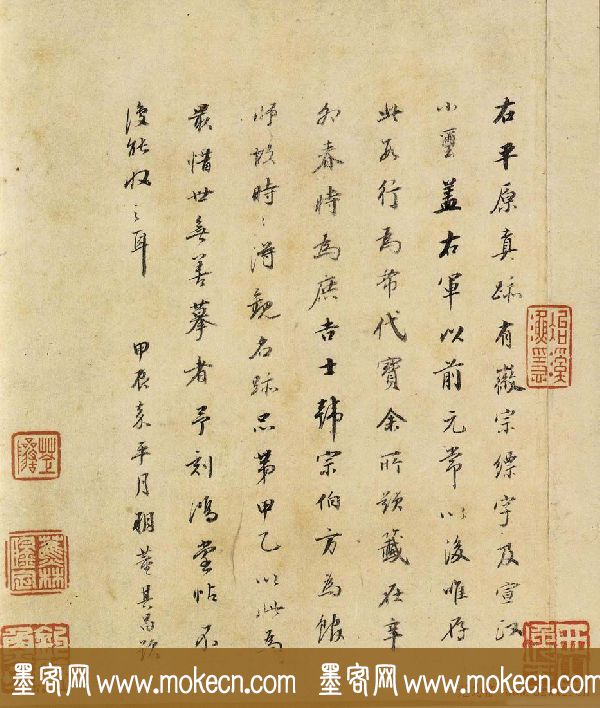 右平原真跡有徽宗縹字及宣政
小璽蓋右軍以前元常以後唯存
此數行為希代寶余所題籤在辛
卯春時為庶吉士韓宗伯方為館
師故時〻得觀名跡品第甲乙以此為
最惜世無善摹者予刻鴻堂帖不
復能收之耳 甲辰嘉平月朔董其昌題
冶溪漁隱
蕉林
墨客网 www.mokecn.com 墨客网 www.mokecn.com